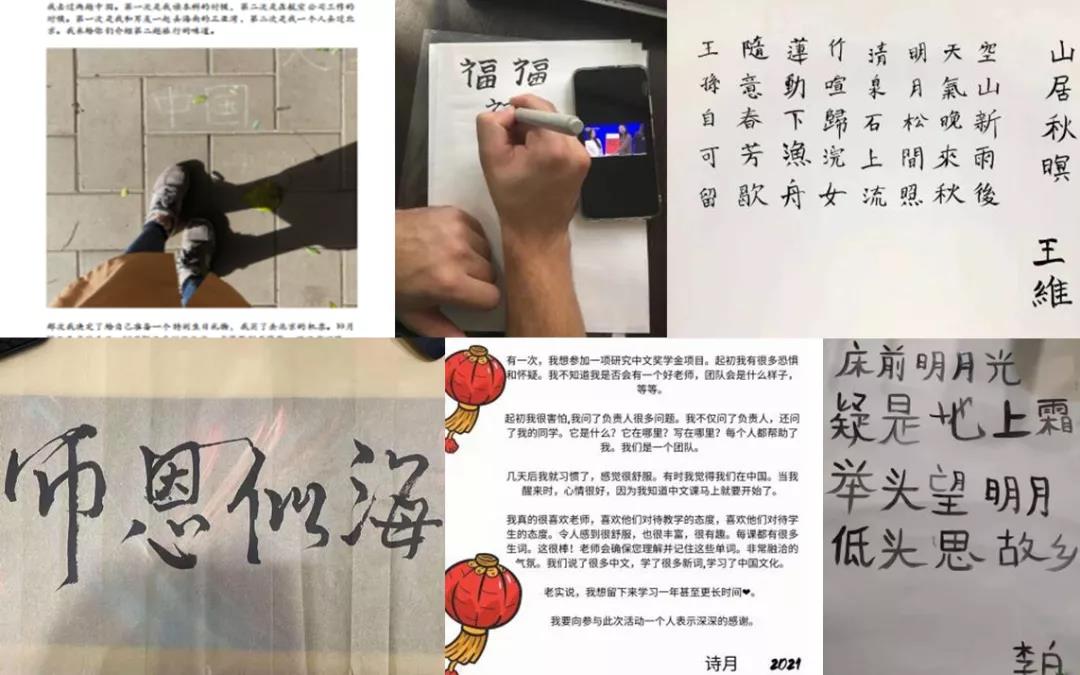 我去过两趟中国。第一次是我读本科的时候，第二次是在航空公司工作的
时候。第一次是我和男友一起去海南的三亚湾，第二次是我一个人去过北
京。我来给你们介绍第二趟旅行的味道。
中国
那次我决定了给自己准备一个特别生日礼物，我买了去北京的机票。10月
福福
山居秋暝
王維
空山新雨後
天氣晚來秋
明月松間照
清泉石上流
竹喧歸浣女
蓮動下漁舟
隨意春芳歇
王孫自可留
师恩似海
有一次，我想参加一项研究中文奖学金项目。起初我有很多恐惧
和怀疑。我不知道我是否会有一个好老师，团队会是什么样子，
等等。
起初我很害怕,我问了负责人很多问题。我不仅问了负责人，还问
了我的同学。它是什么？它在哪里？写在哪里？每个人都帮助了
我。我们是一个团队。
几天后我就习惯了，感觉很舒服。有时我觉得我们在中国。当我
醒来时，心情很好，因为我知道中文课马上就要开始了。
我真的很喜欢老师，喜欢他们对待教学的态度，喜欢他们对待学
生的态度。令人感到很舒服，也很丰富，很有趣。每课都有很多
生词。这很棒！老师会确保您理解并记住这些单词。非常融洽的
气氛。我们说了很多中文，学了很多新词,学习了中国文化。
老实说，我想留下来学习一年甚至更长时间❤。
我要向参与此次活动一个人表示深深的感谢。
诗月 2021
床前明月光
疑是地上霜
举头望明月
低头思故乡
李白